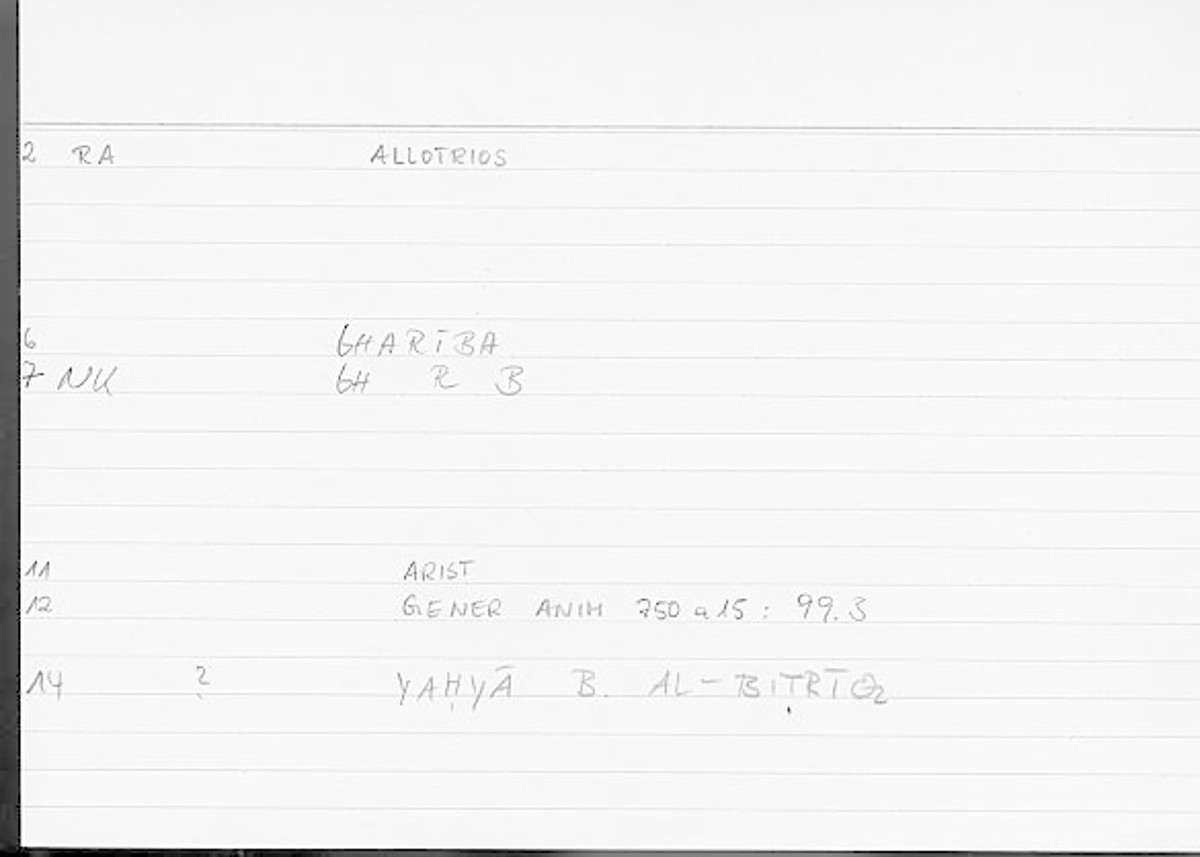 2 RA ALLOTRIOS
6 GHARĪBA
7 NK GH R B
11 ARIST
12 GENER ANIM 750 a 15 : 99.3
14 ? YAḤYĀ B. AL-BIṬRĪQ